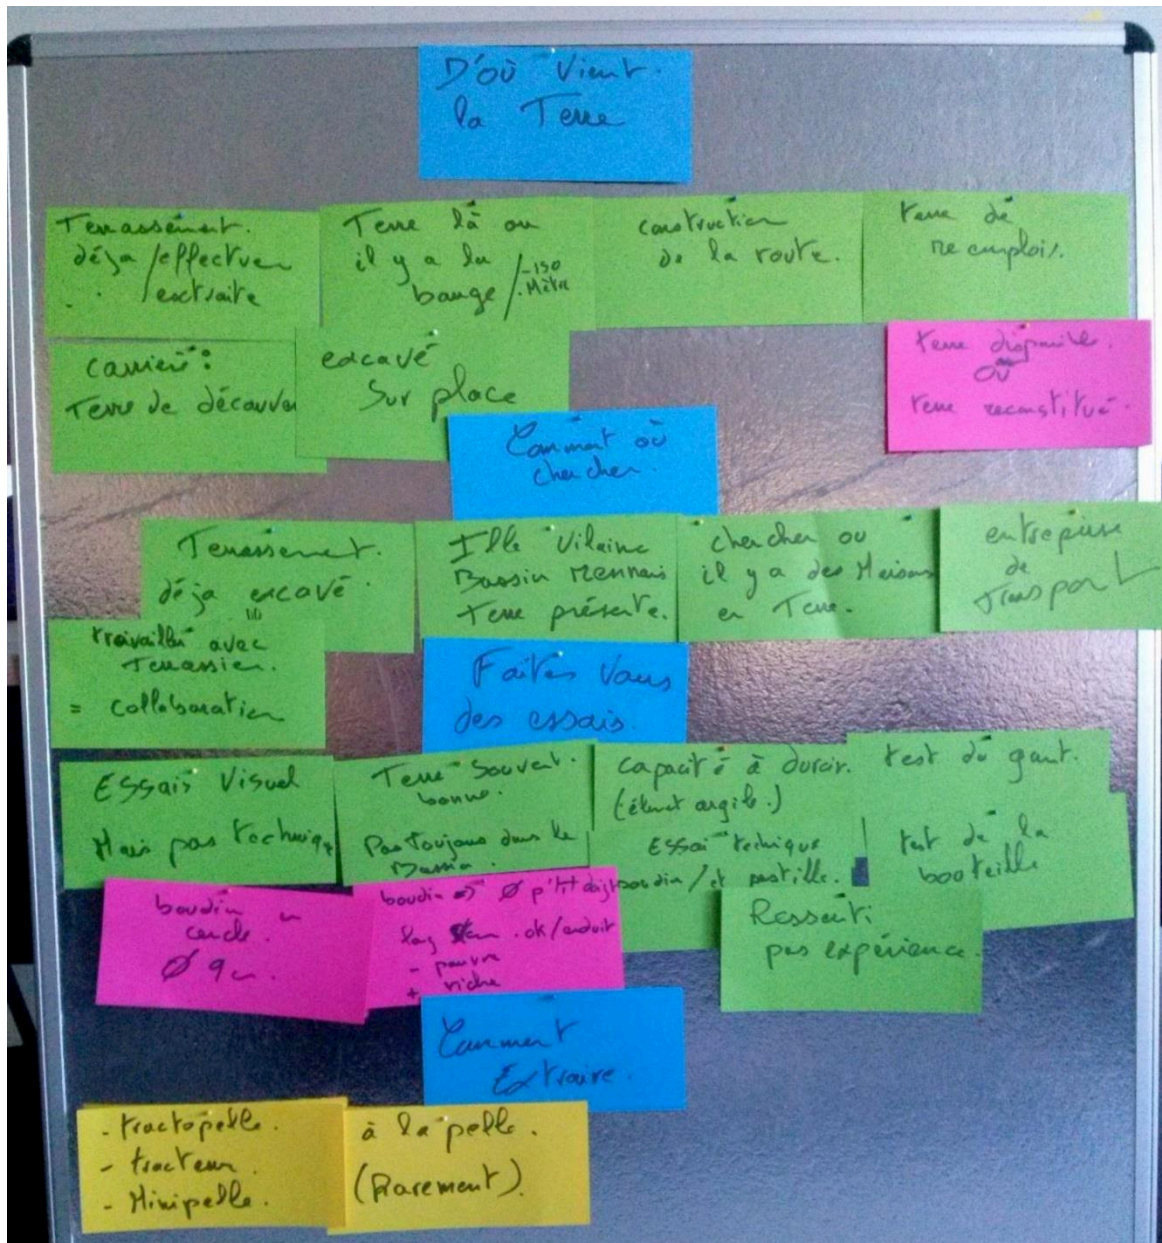 D'où vient.
la Terre
Terrassement.
déja / effectuer
/ extraite
Terre là ou
il y a la
bauge / -150
Mètre
construction
de la route.
terre de
reemplois.
carrière :
Terre de découver
excavé
Sur place
terre disponible.
Où
terre reconstitué.
Comment où
chercher.
Terrassement.
déja excavé.
Ille Vilaine
Bassin Rennais
terre présente.
chercher ou
il y a des Maisons
en Terre.
entreprise
de
Transport
travailler avec
Terrassier.
= collaboration
Faites Vous
des essais.
ESSais Visuel
Mais pas technique
Terre Souvent.
bonne.
Pas Toujours dans le
Bassin.
capacité à durcir.
(élmet argile.)
test du gant.
ESSai technique
boudin / et pastille.
test de la
booteille
boudin en
cercle.
Ø 9cm.
boudin => Ø p'tit doigt
long cm . ok / enduit
- pauvre
+ riche
Ressenti
pas expérience.
Comment
Extraire.
- tractopelle.
- tracteur.
- Minipelle.
à la pelle.
(Rarement).